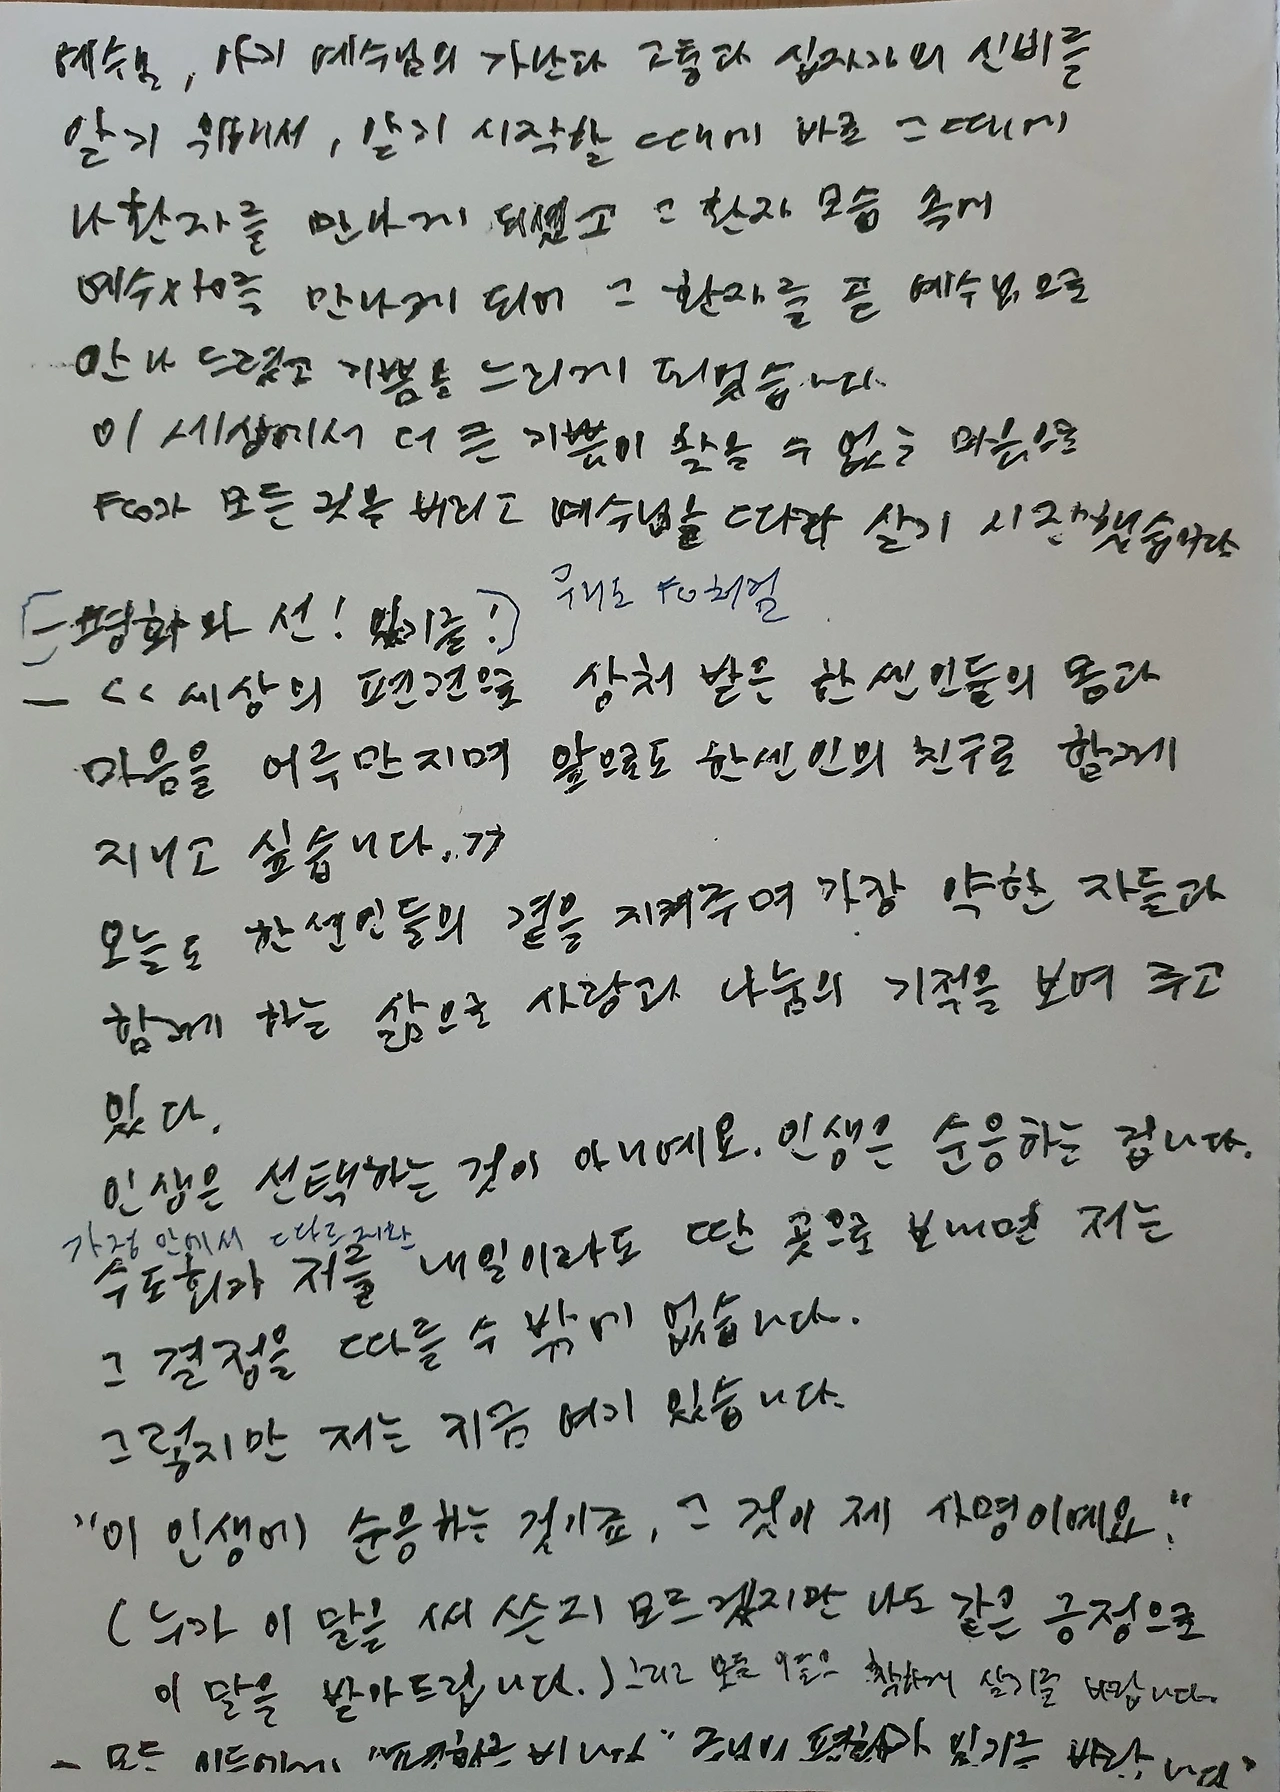 예수님, 아기 예수님의 가난과 고통과 십자가의 신비를
알기 위해서, 알기 시작할 때에 바로 그때에
나환자를 만나게 되셨고 그 환자 모습 속에
예수자를 만나게 되어 그 환자를 픈 예수님으로
안아 드렸고 기쁨을 느끼게 되었습니다.
이 세상에서 더 큰 기쁨이 할 수 없는 마음으로
Fco가 모든 것을 버리고 예수님을 따라 살기 시작했습니다
우리도 Fco처럼
[- 평화와 선! 있기를!]
- << 세상의 편견으로 상처 받은 한센인들의 몸과
마음을 어루만지며 앞으로도 한센인의 친구로 함께
지내고 싶습니다.>>
오늘도 한센인들의 곁을 지켜주며 가장 약한 자들과
함께 하는 삶으로 사랑과 나눔의 기적을 보여 주고
있다.
인생은 선택하는 것이 아니예요. 인생은 순응하는 겁니다.
가정 안에서
수도회가 저를 내일이라도 딴 곳으로 보내면 저는
그 결정을 따를 수 밖에 없습니다.
그렇지만 저는 지금 여기 있습니다.
"이 인생에 순응하는 것이죠, 그 것이 제 사명이예요."
(누가 이 말을 써 쓴지 모르겠지만 나도 같은 긍정으로
이 말을 받아드립니다.) 그리고 모든 착하게 살기를 바랍니다.
- 모든 이드에게 "평화를 비나" 주님의 평화가 있기를 바랍니다"